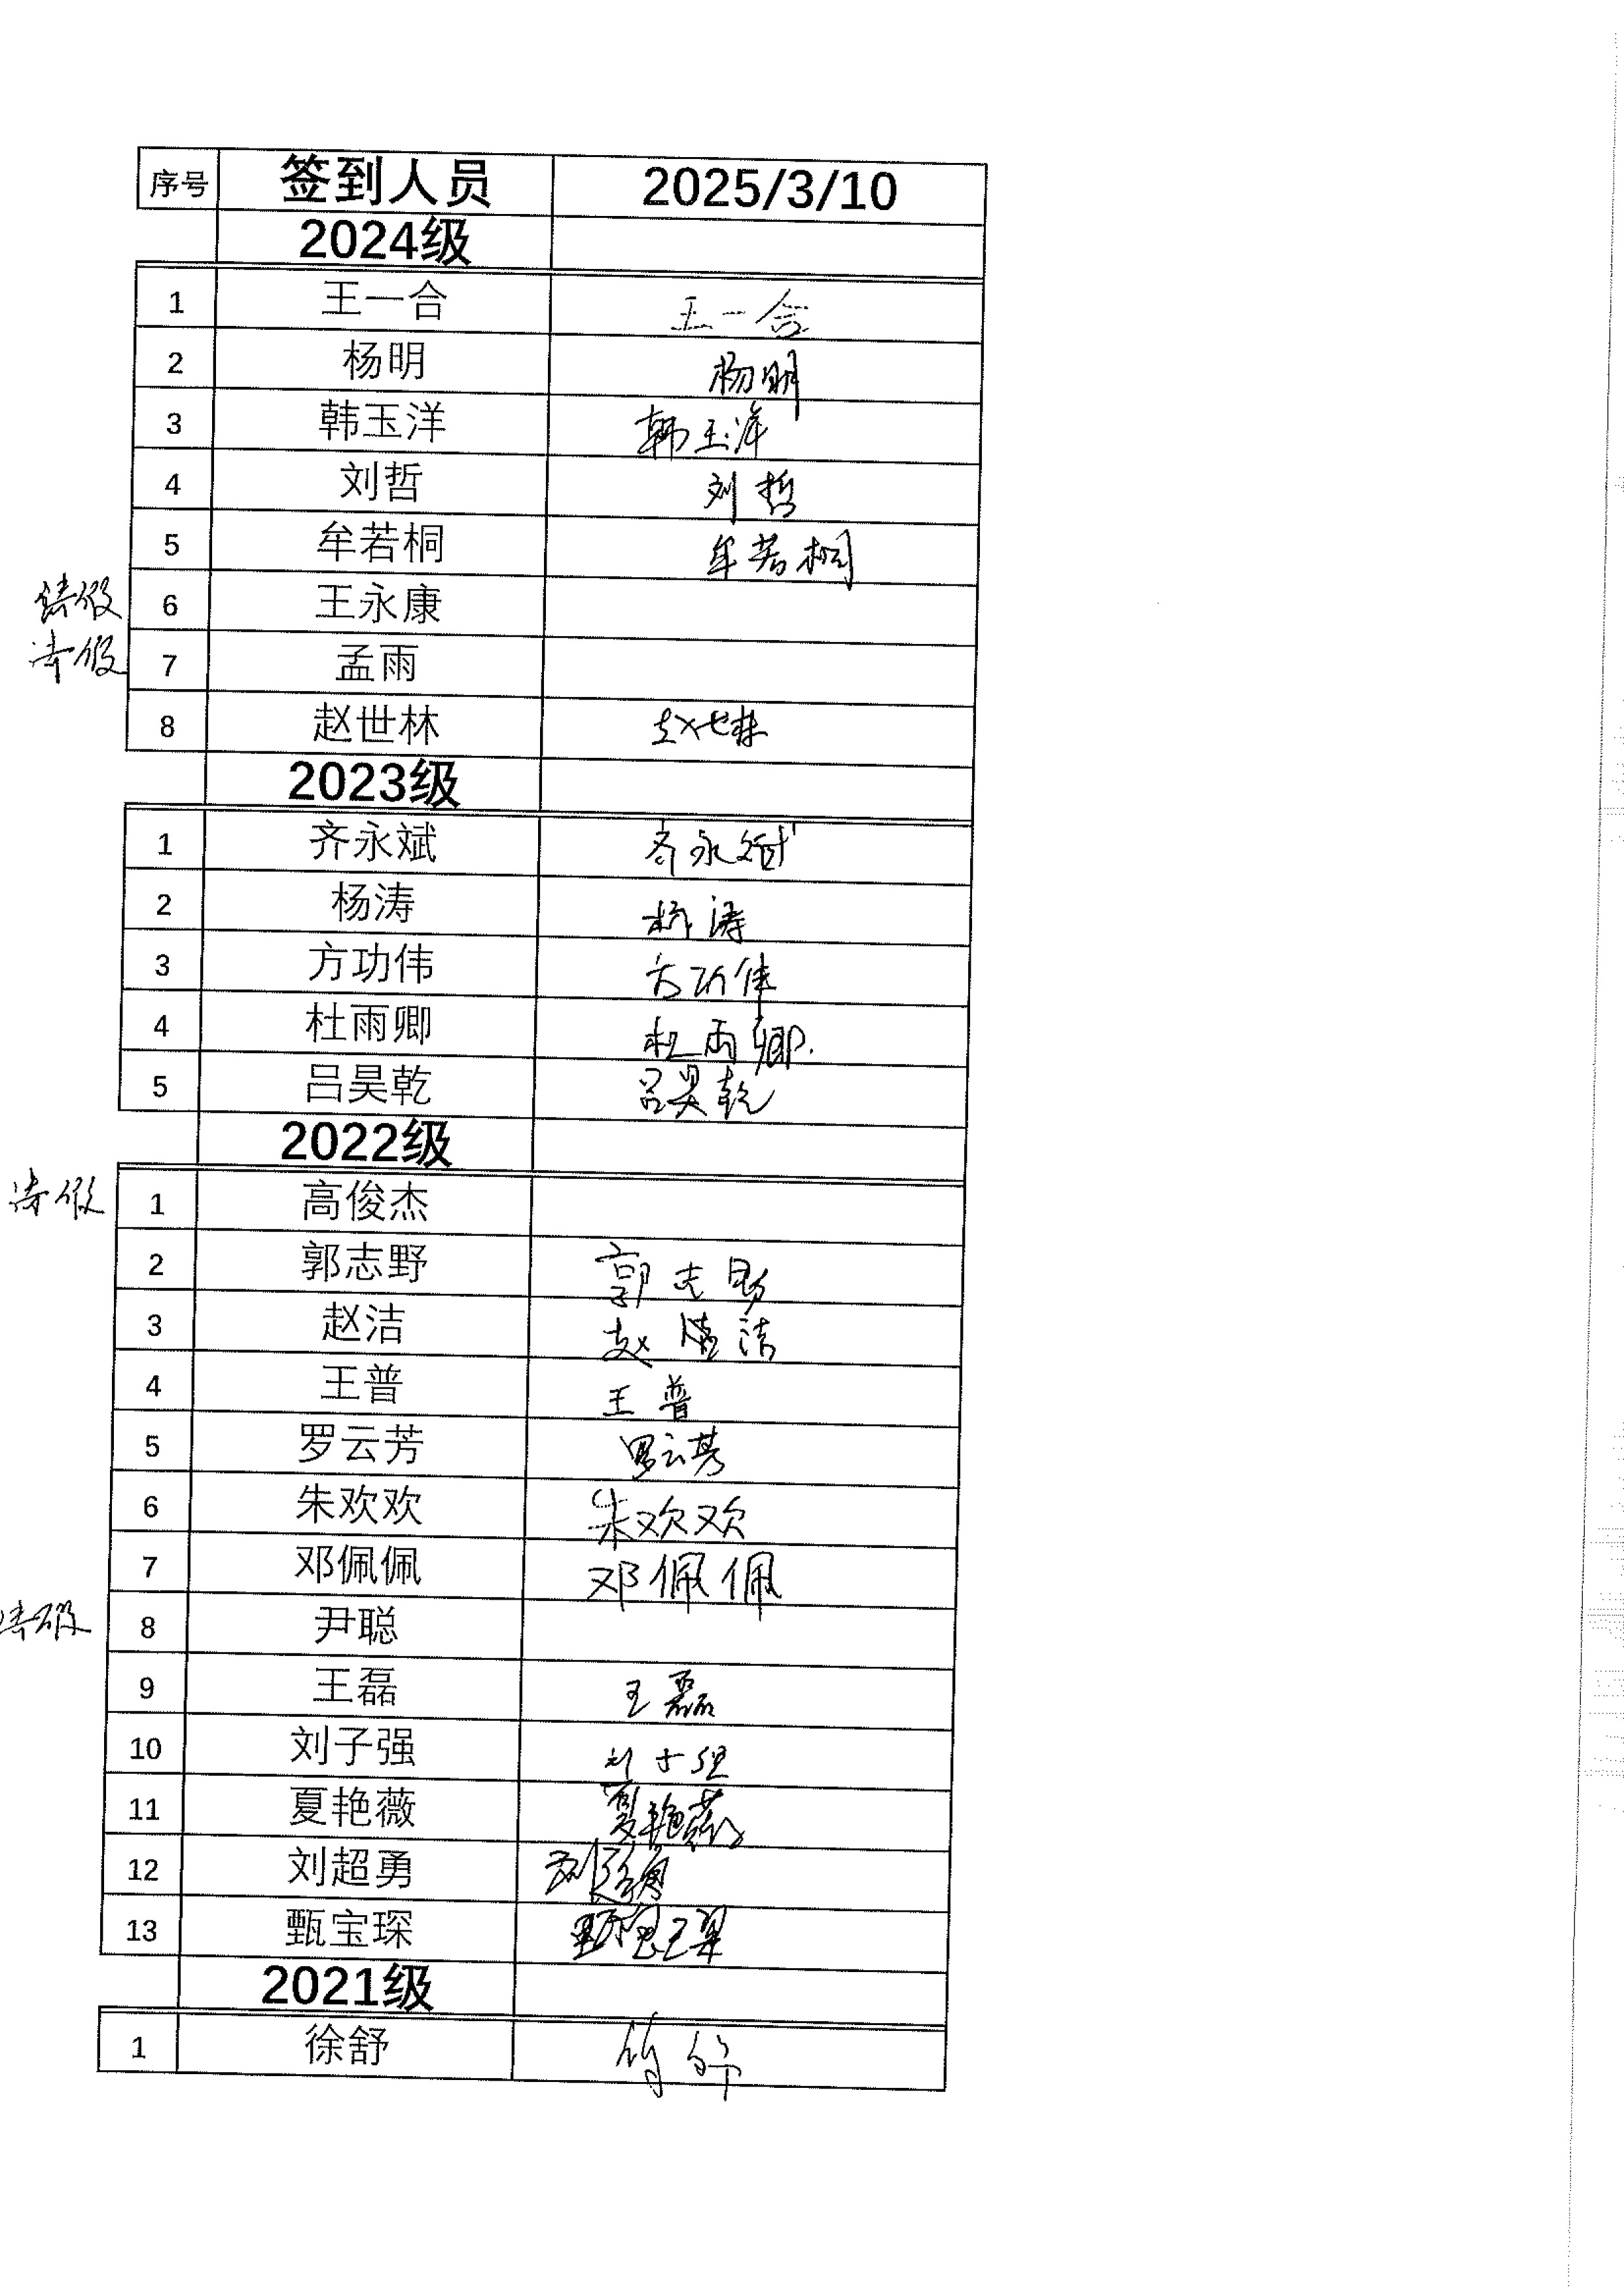 序号 签到人员 2025/3/10
2024级
1 王一合 王一合
2 杨明 杨明
3 韩玉洋 韩玉洋
4 刘哲 刘哲
5 牟若桐 牟若桐
请假 6 王永康
请假 7 孟雨
8 赵世林 赵世林
2023级
1 齐永斌 齐永斌
2 杨涛 杨涛
3 方功伟 方功伟
4 杜雨卿 杜雨卿.
5 吕昊乾 吕昊乾
2022级
请假 1 高俊杰
2 郭志野 郭志野
3 赵洁 赵 洁
4 王普 王普
5 罗云芳 罗云芳
6 朱欢欢 朱欢欢
7 邓佩佩 邓佩佩
请假 8 尹聪
9 王磊 王磊
10 刘子强 刘子强
11 夏艳薇 夏艳薇
12 刘超勇 刘超勇
13 甄宝琛 甄宝琛
2021级
1 徐舒 徐舒